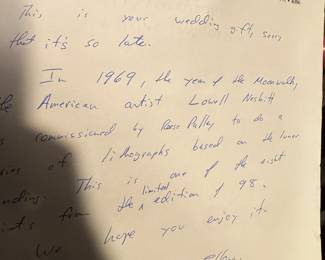 This is your wedding gift, sorry
that it's so late.
In 1969, the year of the Moonwalk,
the American artist Lowell Nesbitt
commissioned by Reese Palley to do a
of lithographs based on the lunar
This is one of the eight
from the limited edition of 98.
We hope you enjoy it.